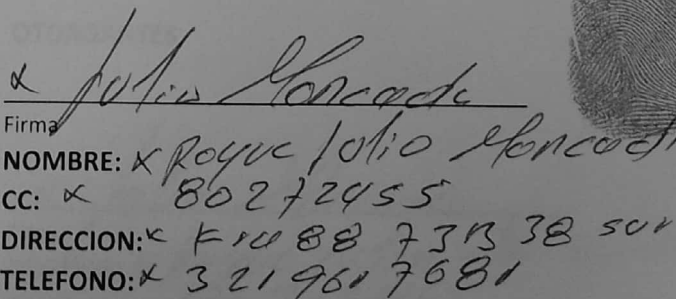 x Julio Moncada
Firma
NOMBRE: x Roque Julio Moncada
CC: x 80272455
DIRECCION: x Kra 88 73B 38 sur
TELEFONO: x 321 961 7681